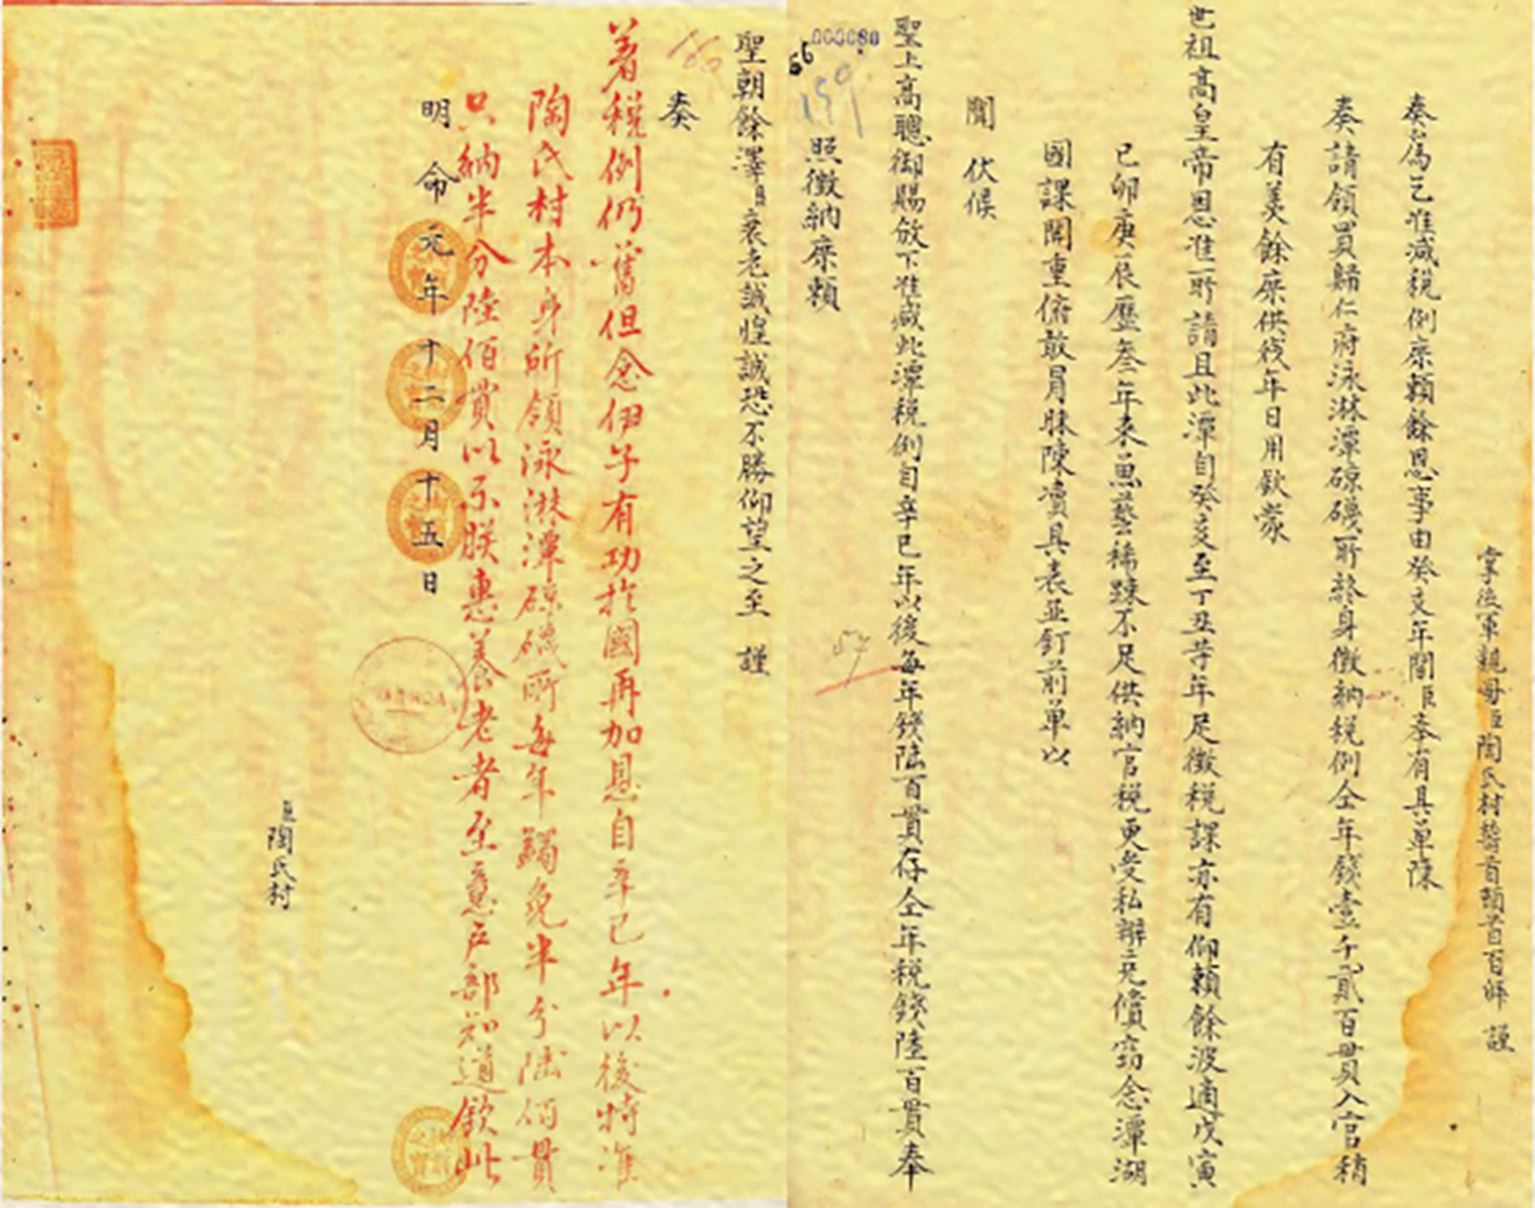 掌後軍親母臣陶氏村稽首頓首百拜 謹
奏為乞准減稅例庶賴餘恩事由癸亥年間臣奉有具單陳
奏請領買歸仁府泳淋潭磙磯所終身徵納稅例仝年錢壹千貳百貫入官稍
有羨餘庶供残年日用欽蒙
世祖高皇帝恩准所請且此潭自癸亥至丁丑等年足徵稅課亦有仰賴餘波適戊寅
己卯庚辰歷叁年來魚蝦稀踈不足供納官稅更受私辦充償窃念潭湖
國課關重俯敢冒昧陳瀆具表並釘前单以
聞 伏候
聖上高聰御賜放下准減此潭稅例自辛巳年以後每年錢陸百貫存仝年稅錢陸百貫奉
照徵納庶賴
000080
66
159
57
聖朝餘澤臣衰老誠惶誠恐不勝仰望之至 謹
奏
160
著稅例仍舊但念伊子有功於國再加恩自辛巳年以後特准
陶氏村本身所領泳淋潭磙磯所每年蠲免半分陸佰貫
只納半分陸佰貫以示朕惠養老者至意戶部知道欽此
明命元年十二月十五日
臣陶氏村